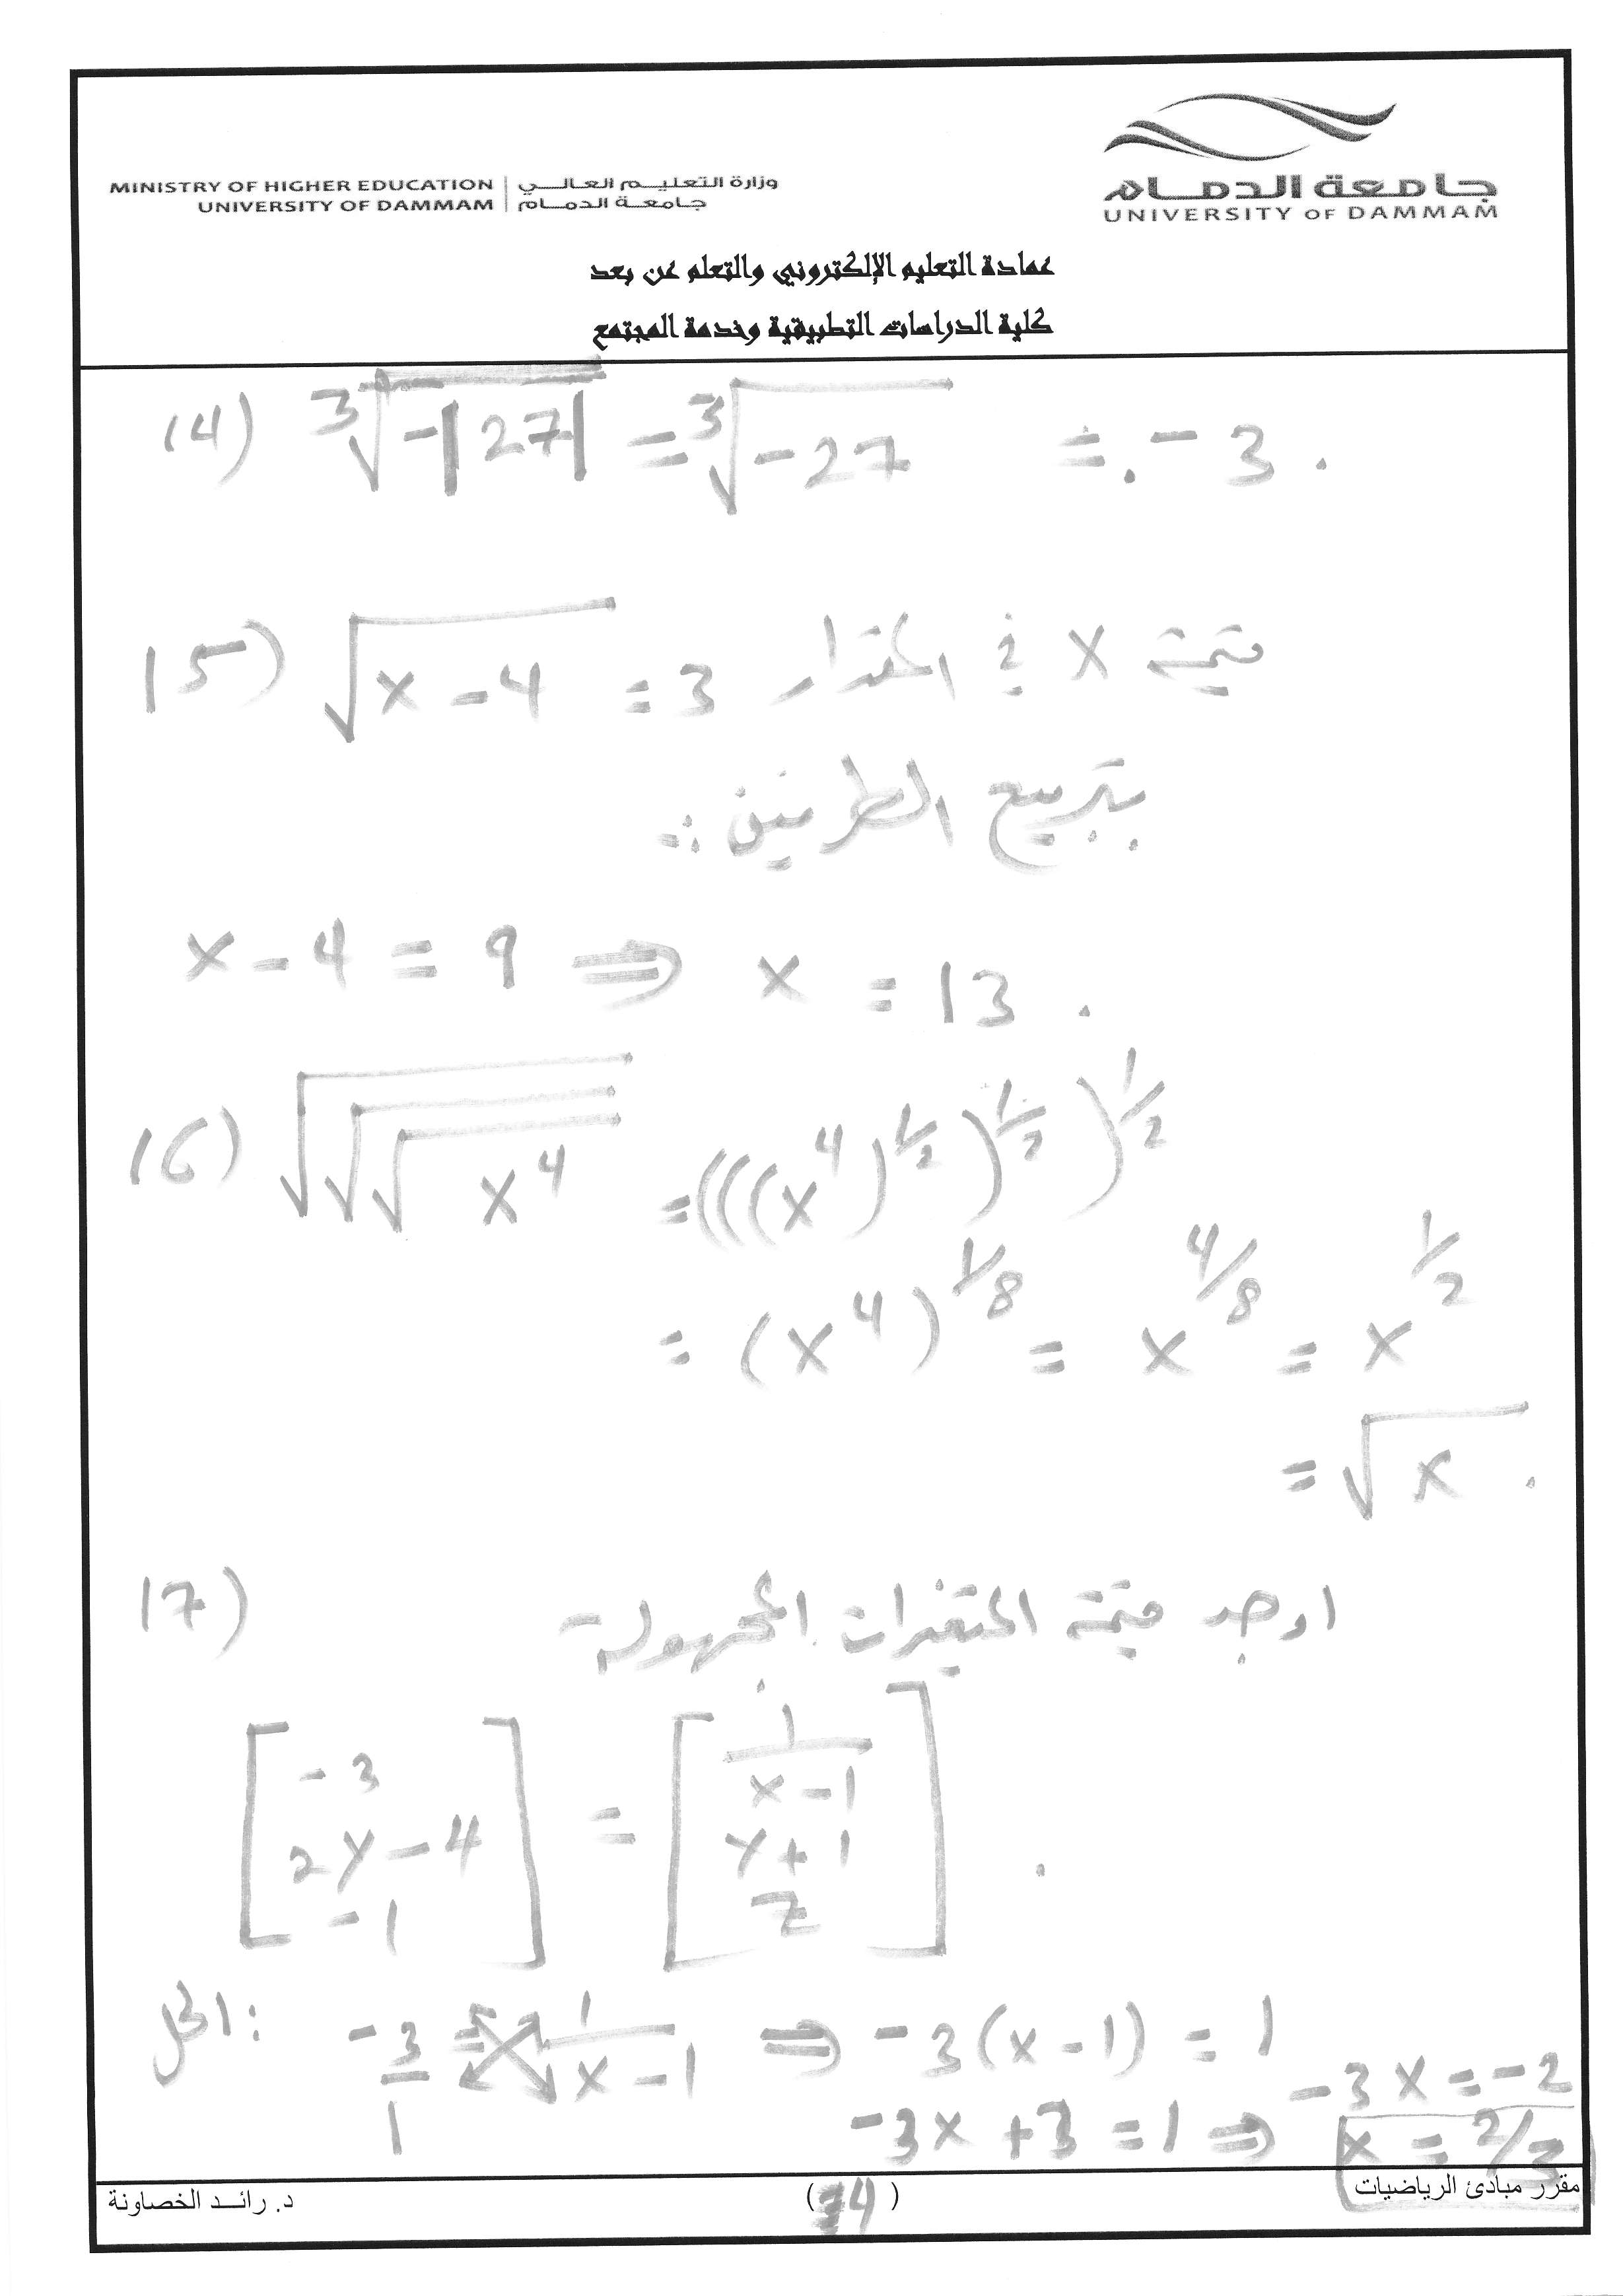 جامعة الدمام
UNIVERSITY OF DAMMAM
MINISTRY OF HIGHER EDUCATION | وزارة التعليم العالي
UNIVERSITY OF DAMMAM | جامعة الدمام
عمادة التعليم الإلكتروني والتعلم عن بعد
كلية الدراسات التطبيقية وخدمة المجتمع
14) ³√-|27| = ³√-27 = -3 .
15) √x-4 = 3 قيمة x في المقدار
بتربيع الطرفين :-
x - 4 = 9 ⇒ x = 13 .
16) √√√x⁴ = (((x⁴)^1/2)^1/2)^1/2
= (x⁴)^1/8 = x^4/8 = x^1/2
= √x .
17) اوجد قيمة المتغيرات المجهولة-
[-3 2y-4 -1] = [1/(x-1) y+1 z] .
الحل: -3/1 = 1/(x-1) ⇒ -3(x-1) = 1
-3x+3=1 ⇒ -3x=-2
x = 2/3
مقرر مبادئ الرياضيات (14) د. رائد الخصاونة